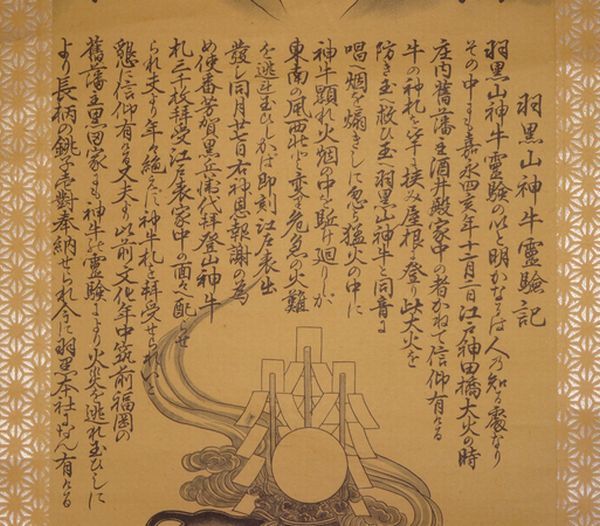 羽黒山神牛霊験記
羽黒山神牛霊験のいと明かなるは人乃知る処なり
その中にも嘉永四亥年十二月二日江戸神田橋大火の時
庄内舊藩主酒井殿家中の者かねて信仰有ける
牛の神札を竿に挟み屋根に登り此大火を
防き玉へ救ひ玉へ羽黒山神牛と同音に
唱へ烟を煽きしに忽ち猛火の中に
神牛顕れ火烟の中を駈け廻りしが
東南の風西北に変り危急の火難
を逃斗玉ひしかば即刻江戸表出
発し同月廿日右神恩報謝の為
め使番芳賀黒兵衛代拝登山神牛
札三千枚拝受江戸表家中の面々へ配らせ
られ夫より年々絶えに神牛札を拝受せられ
懇に信仰有ける又夫より以前文化年中筑前福岡の
舊藩主黒田家にも神牛の霊験により火災を逃れ玉ひしに
より長柄の銚子壱對奉納せられ今に羽黒本社になん有ける